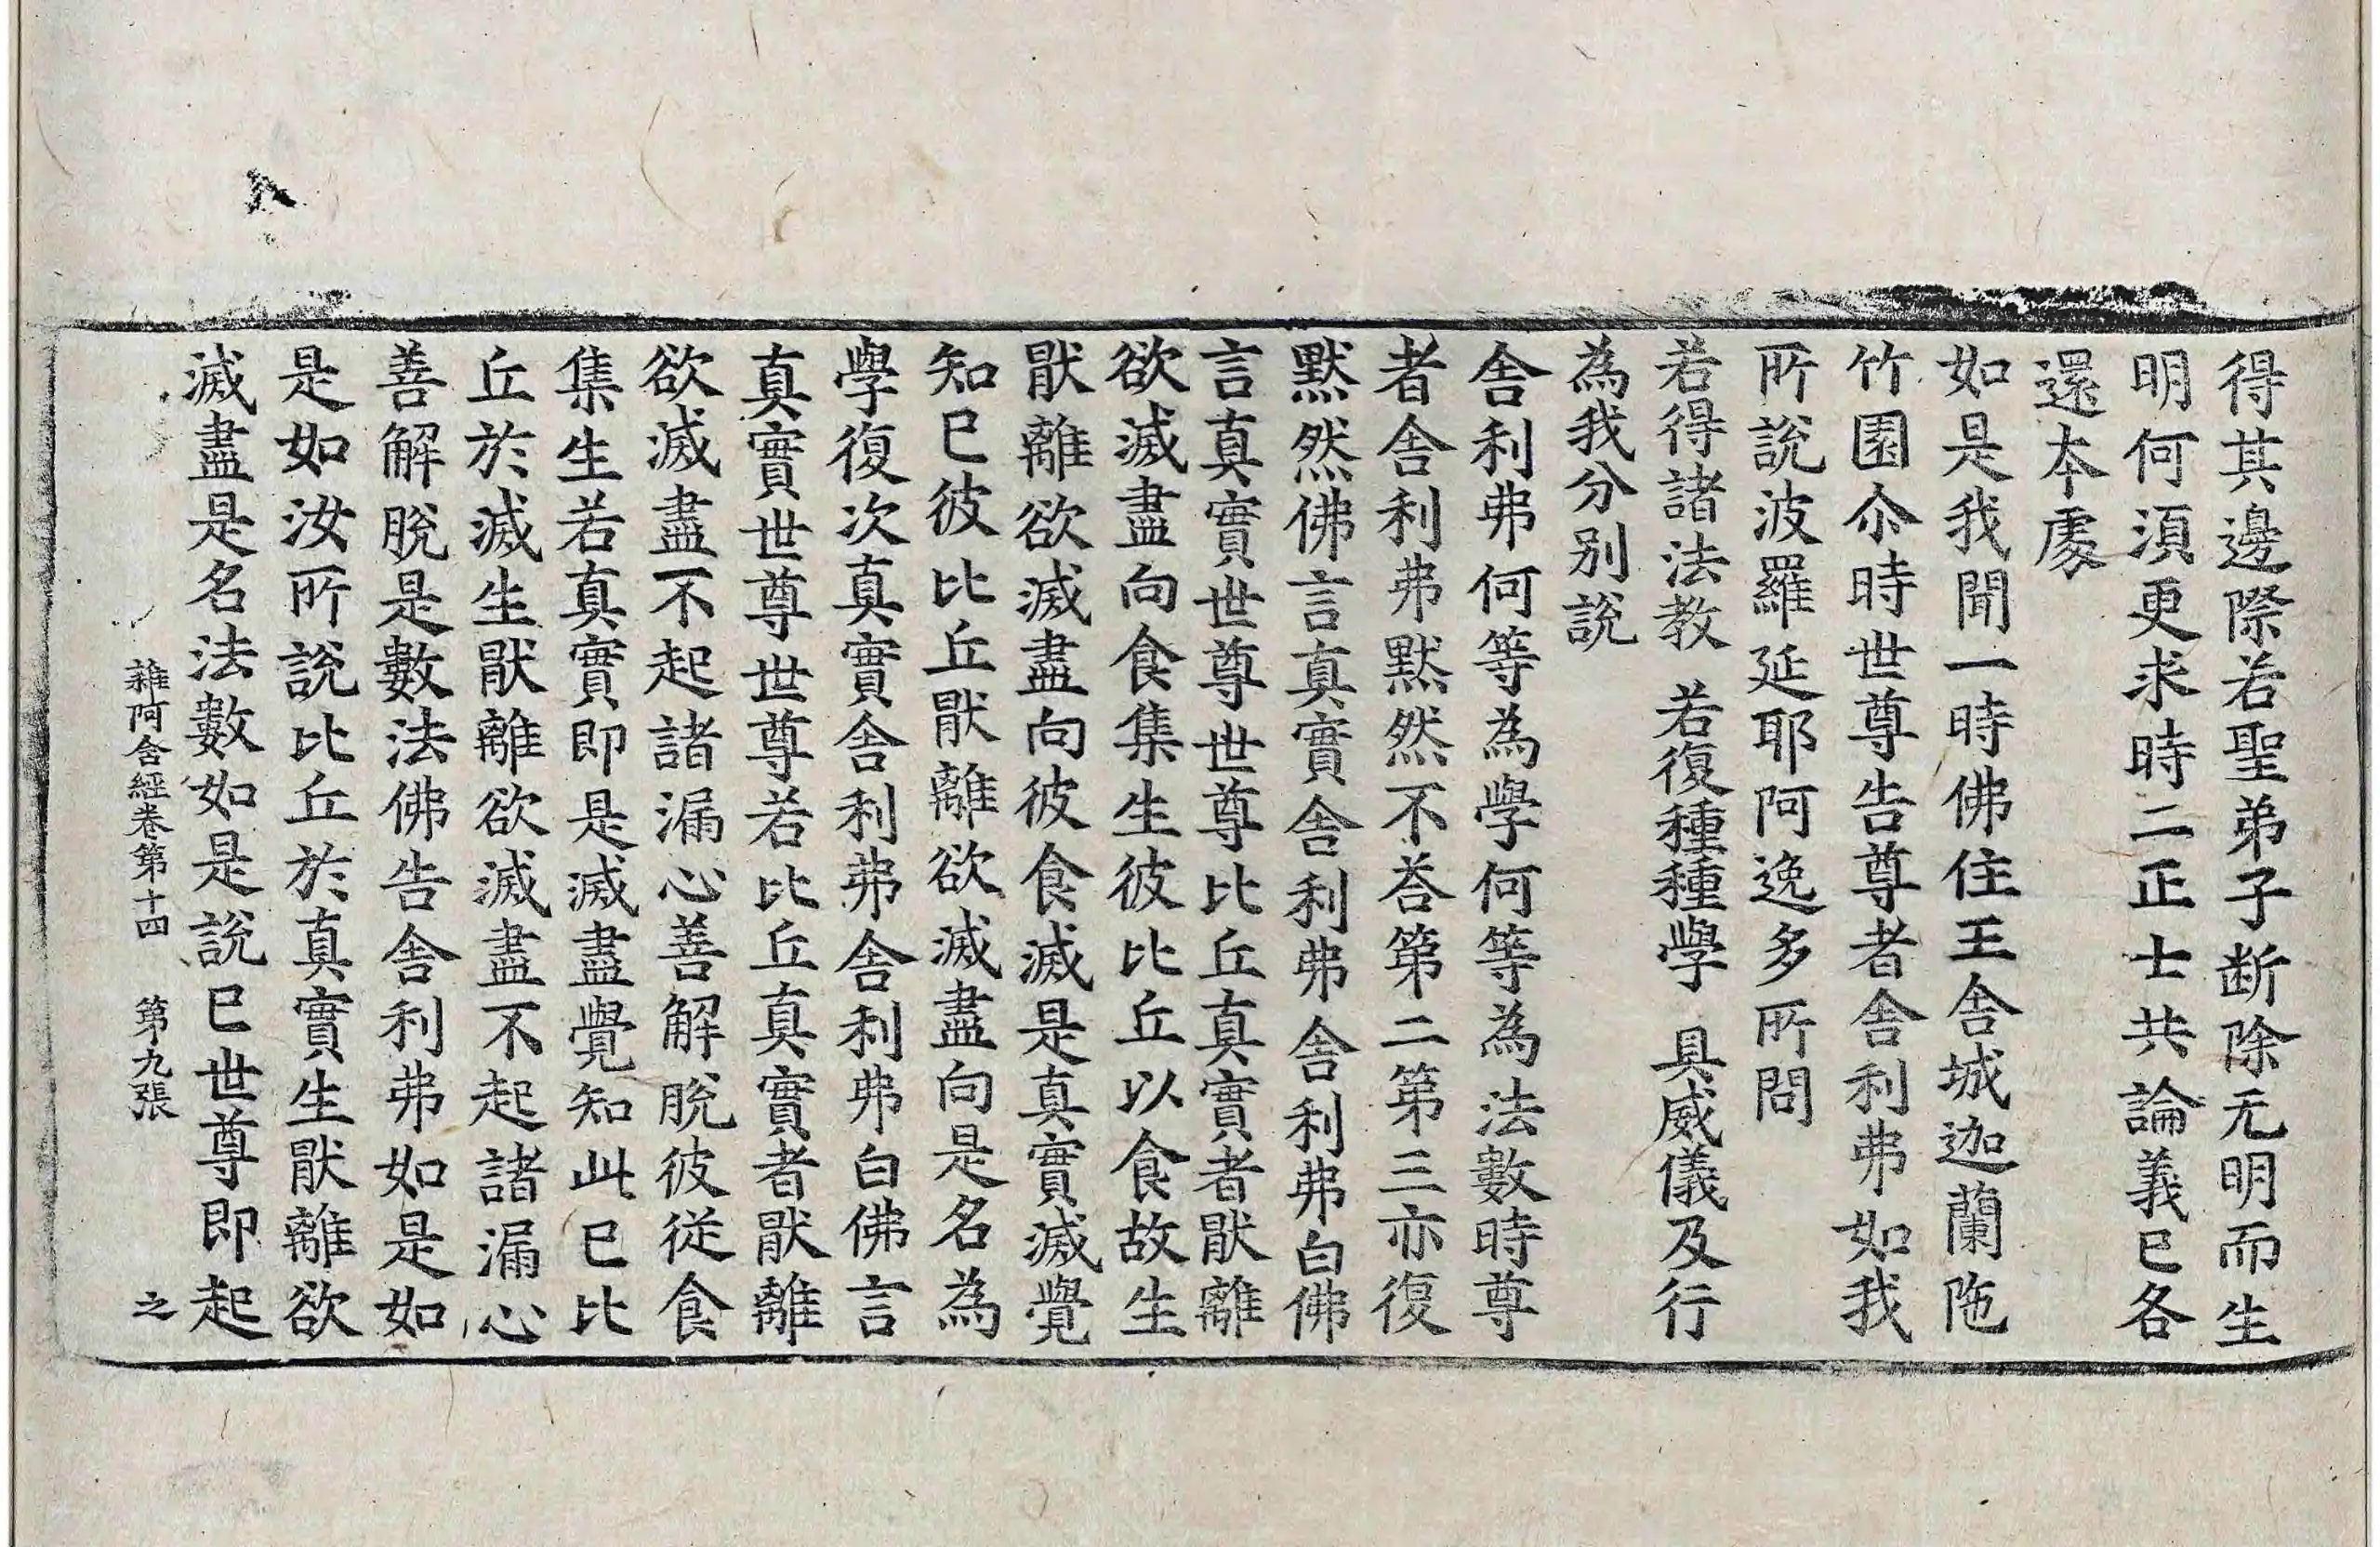 得其邊際若聖弟子断除无明而生
明何湏更求時二正士共論義已各
還本處
如是我聞一時佛住王舍城迦蘭陁
竹園尒時世尊告尊者舍利弗如我
所說波羅延耶阿逸多所問
若得諸法教　若復種種學　具威儀及行
為我分別說
舍利弗何等為學何等為法數時尊
者舍利弗默然不荅第二第三亦復
默然佛言真實舍利弗舍利弗白佛
言真實世尊世尊比丘真實者猒離
欲滅盡向食集生彼比丘以食故生
猒離欲滅盡向彼食滅是真實滅覺
知已彼比丘猒離欲滅盡向是名為
學復次真實舍利弗舍利弗白佛言
真實世尊世尊若比丘真實者猒離
欲滅盡不起諸漏心善解脫彼從食
集生若真實即是滅盡覺知此已比
丘於滅生猒離欲滅盡不起諸漏心
善解脫是數法佛告舍利弗如是如
是如汝所說比丘於真實生猒離欲
滅盡是名法數如是說已世尊即起
雜阿含經卷第十四　第九張　之